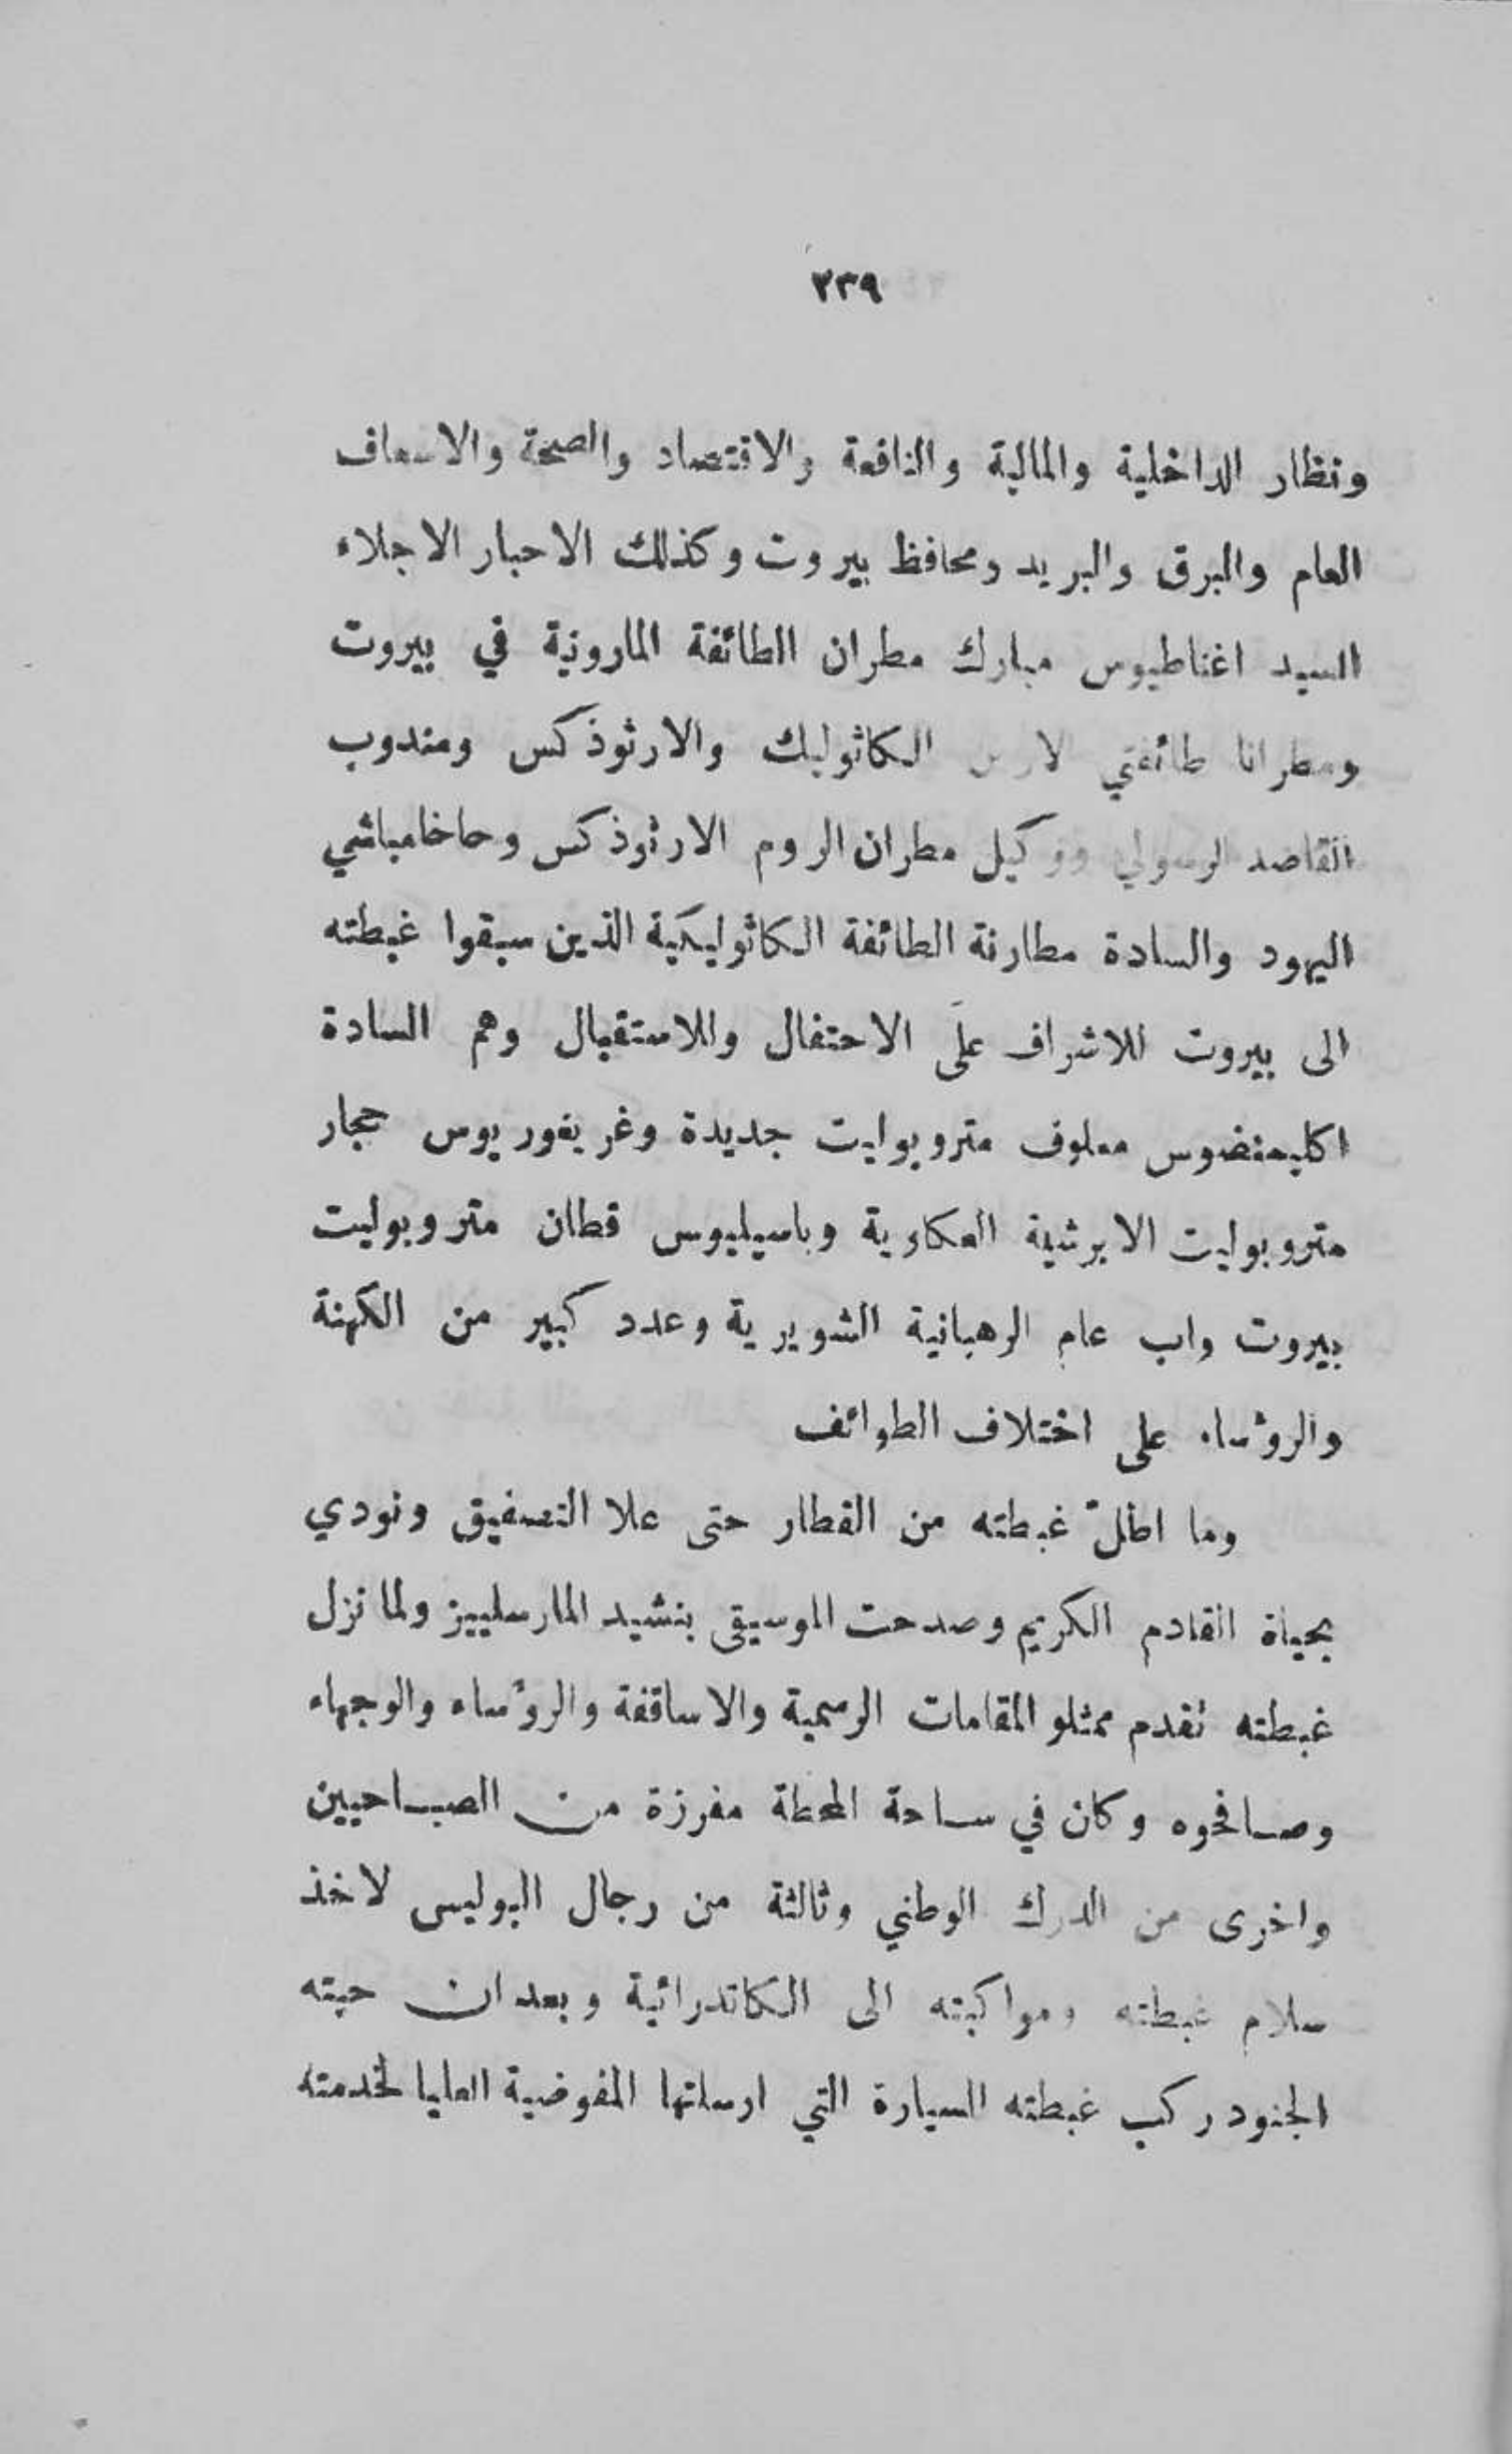 ٢٣٩
ونظار الداخلية والمالية والنافعة والاقتصاد والصحة والاسعاف
العام والبرق والبريد ومحافظ بيروت وكذلك الاحبار الاجلاء
السيد اغناطيوس مبارك مطران الطائفة المارونية في بيروت
ومطرانا طائفتي الكاثوليك والارثوذكس ومندوب
القاصد الرسولي ووكيل مطران الروم الارثوذكس وحاخامباشي
اليهود والسادة مطارنة الطائفة الكاثوليكية الذين سبقوا غبطته
الى بيروت للاشراف على الاحتفال وللاستقبال وهم السادة
اكليمنضوس معلوف متروبوليت جديدة وغريغوريوس حجار
متروبوليت الابرشية العكاوية وباسيليوس قطان متروبوليت
بيروت واب عام الرهبانية الشويرية وعدد كبير من الكهنة
والروٴساء على اختلاف الطوائف
وما اطلّ غبطته من القطار حتى علا التصفيق ونودي
بحياة القادم الكريم وصدحت الموسيقى بنشيد المارسلييز ولما نزل
غبطته تقدم ممثلو المقامات الرسمية والاساقفة والروٴساء والوجهاء
وصافحوه وكان في ساحة المحطة مفرزة من الصباحيين
واخرى من الدرك الوطني وثالثة من رجال البوليس لاخذ
سلام غبطته ومواكبته الى الكاتدرائية وبعد ان حيته
الجنود ركب غبطته السيارة التي ارسلتها المفوضية العليا لخدمته